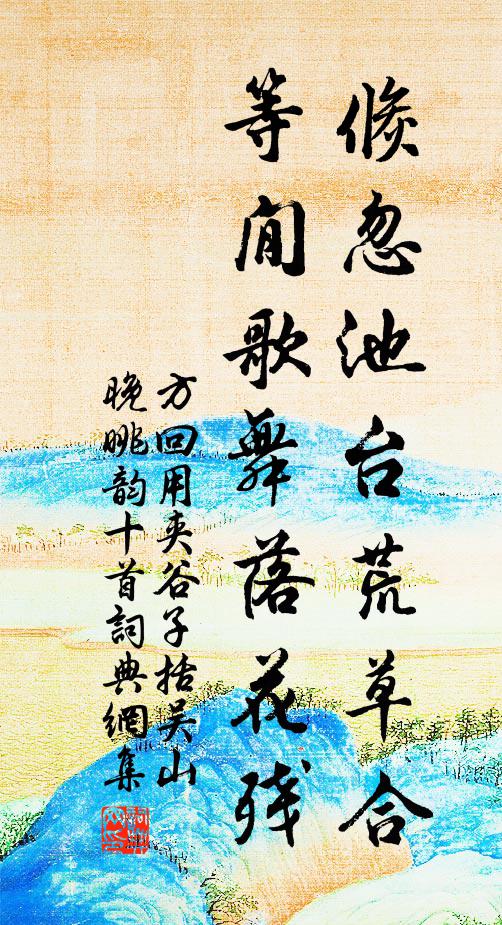 倏忽池台荒草合
等闲歌舞落花残
方回用夹谷子括吴山
晚眺韵十首詞典網集